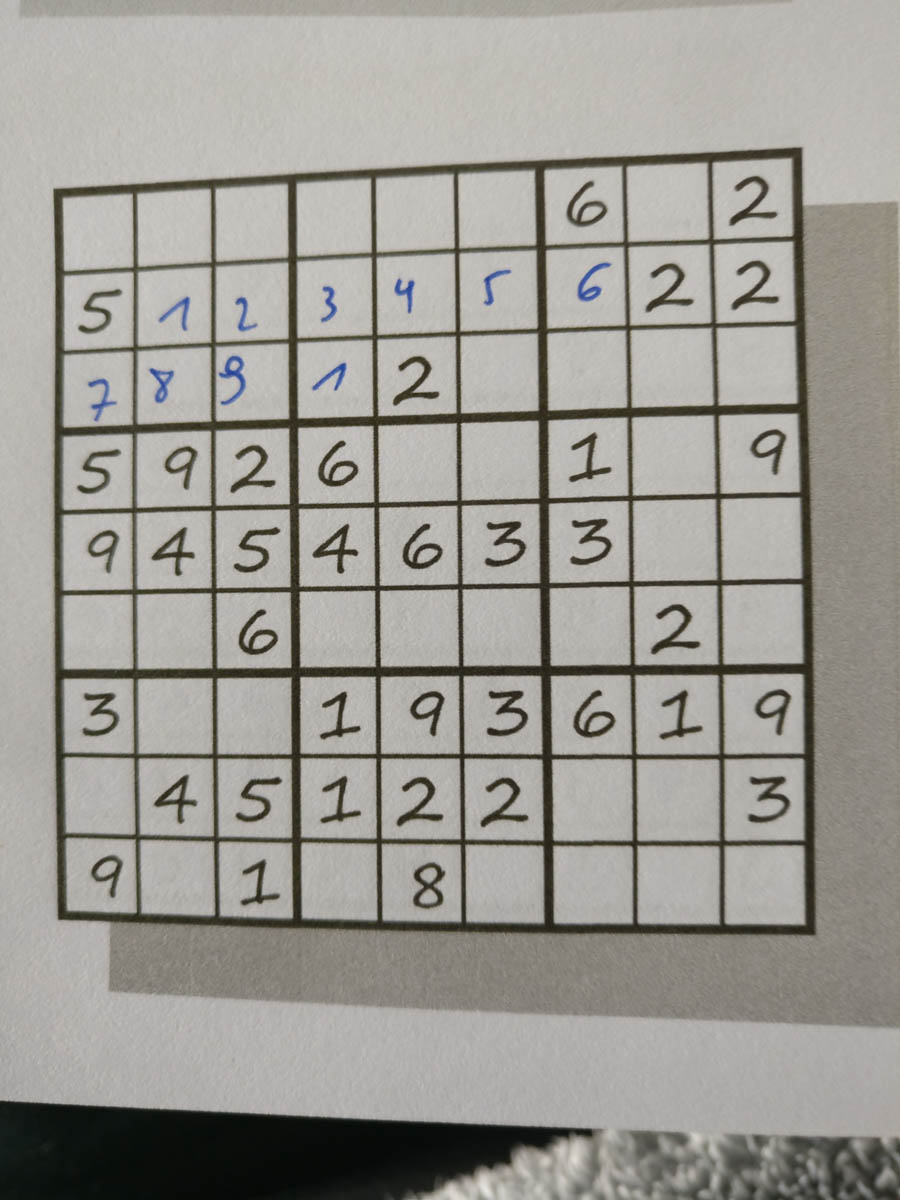 6 2
5 1 2 3 4 5 6 2 2
7 8 9 1 2
5 9 2 6 1 9
9 4 5 4 6 3 3
6 2
3 1 9 3 6 1 9
4 5 1 2 2 3
9 1 8